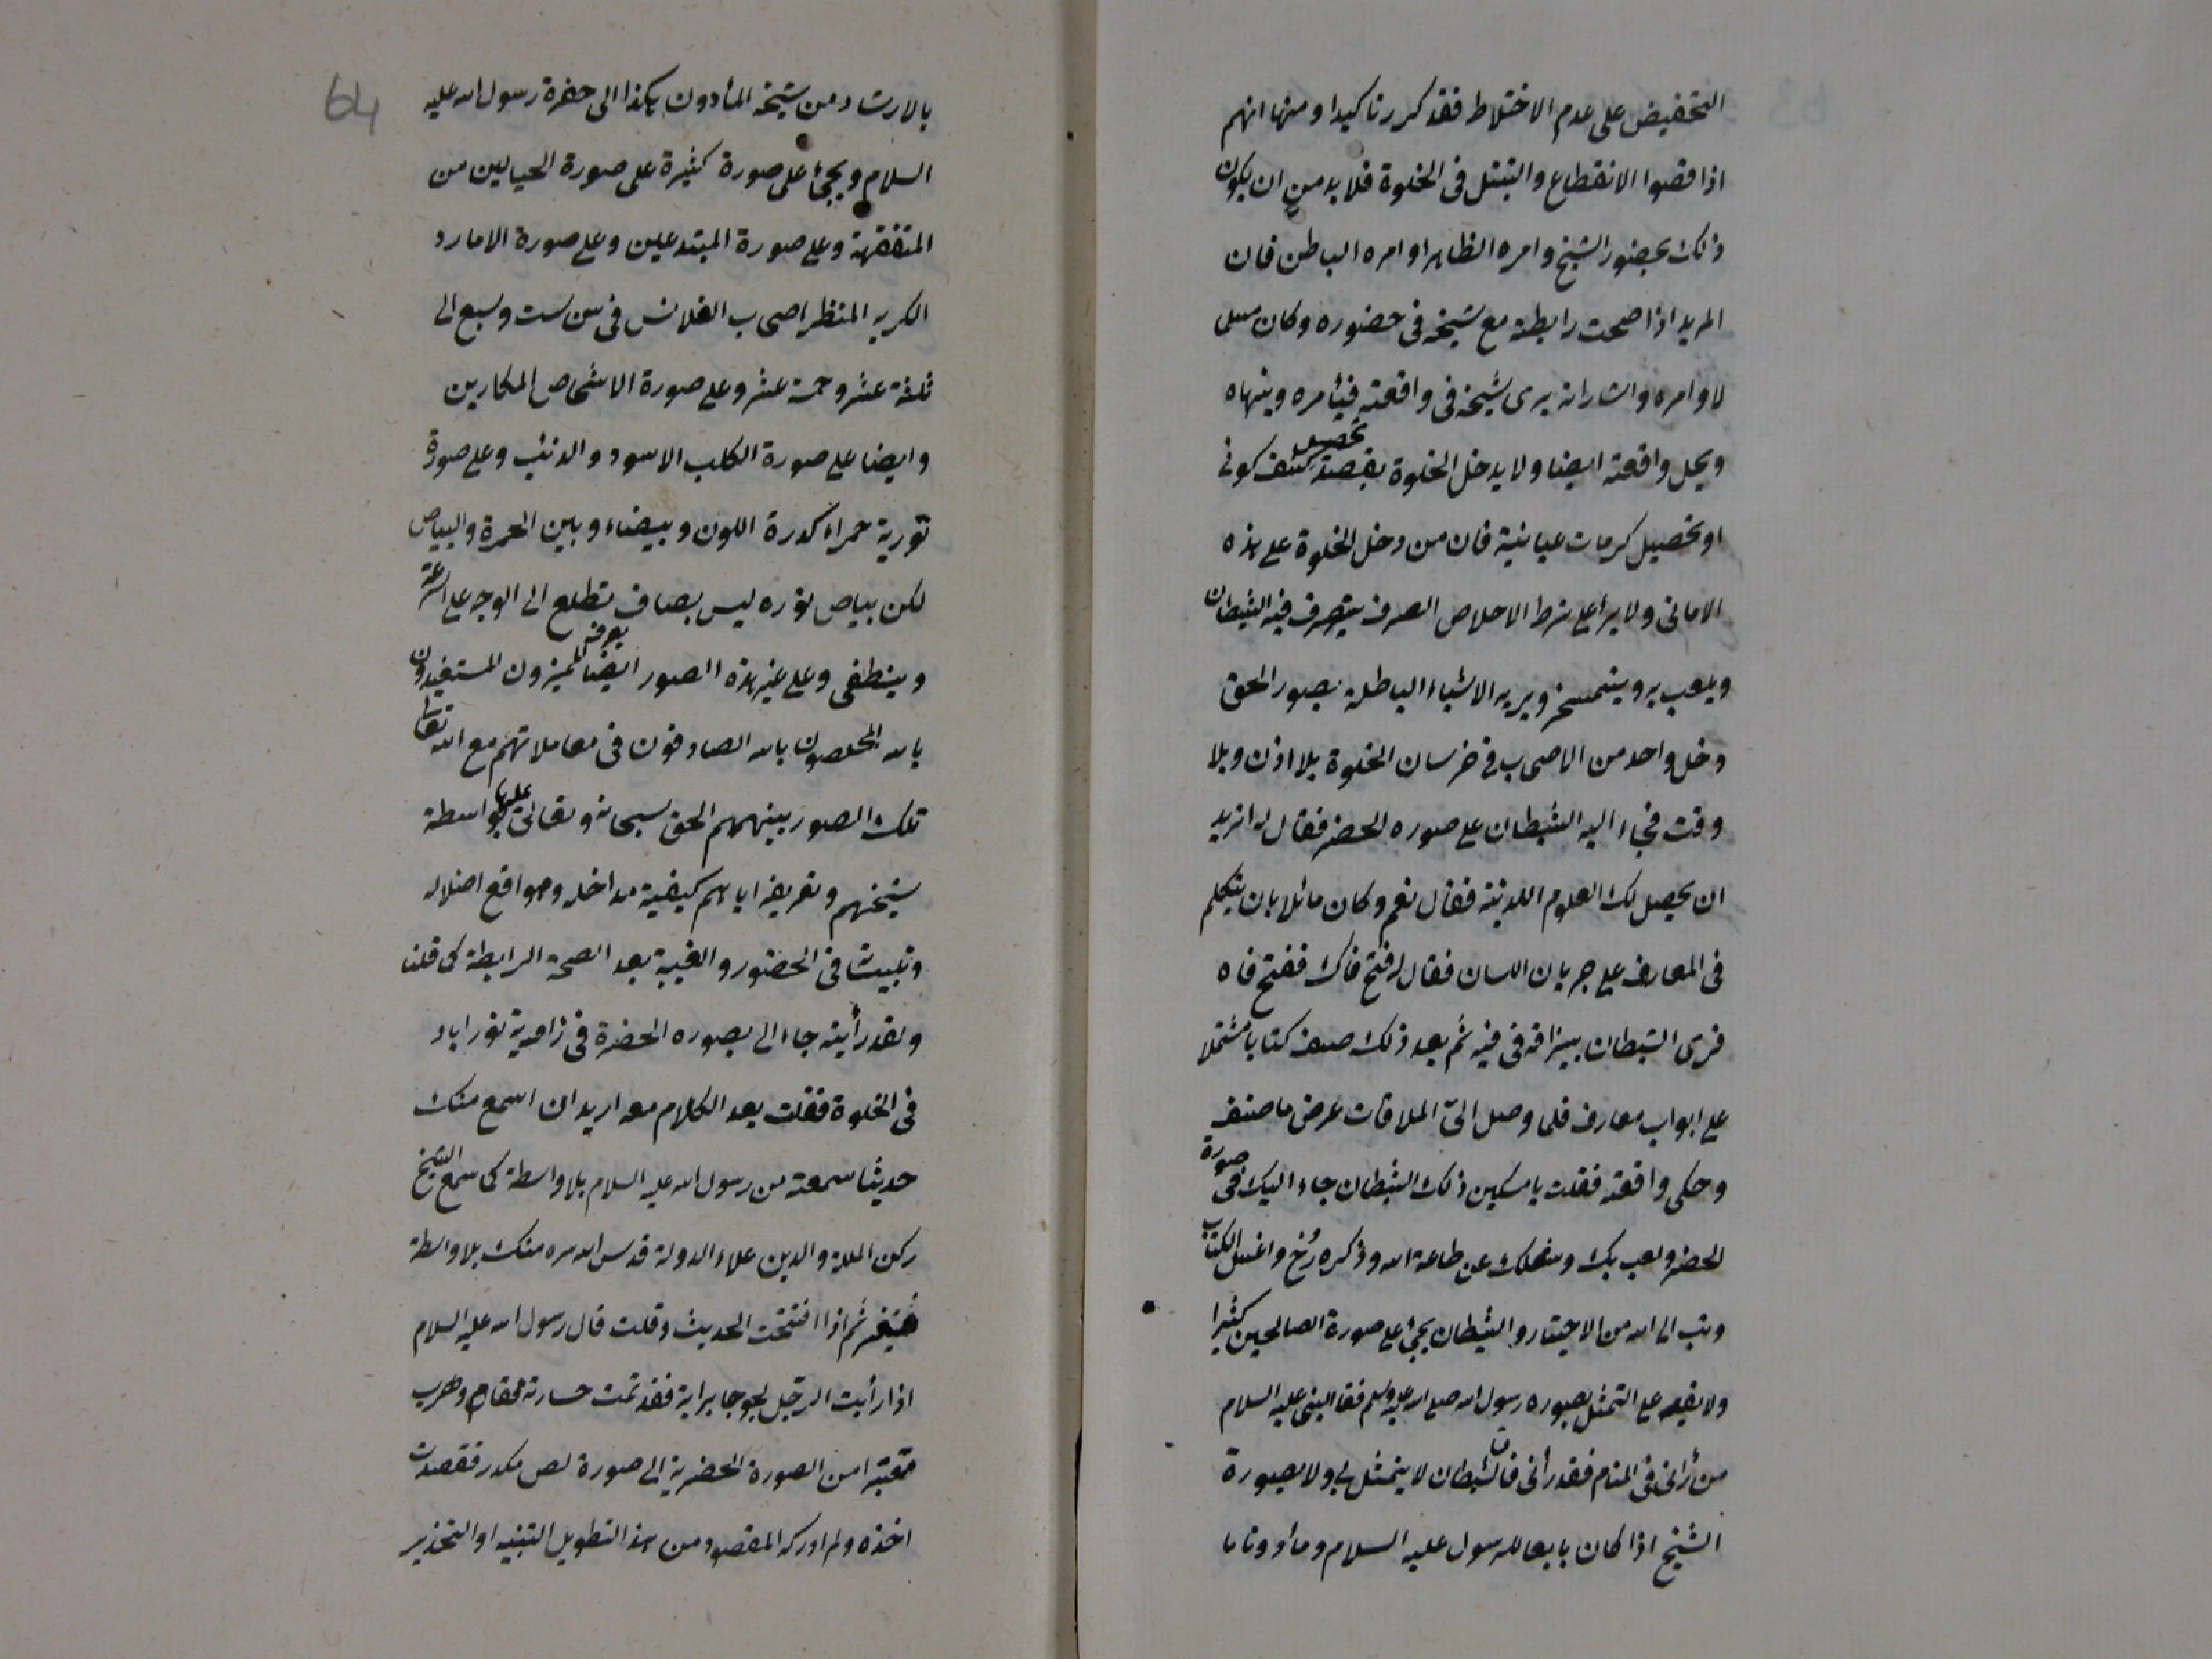 التحفيض على عدم الاختلاط فقد كررنا كيدا ومنها انهم
اذا قصدوا الانقطاع والتبتل فى الخلوة فلا بد من ان يكون
ذلك بحضور الشيخ وامره الظاهر او امره الباطن فان
المريد اذا صحت رابطة مع شيخه فى حضوره وكان مسلما
لاوامره واشاراته يرى شيخه فى واقعته فيأمره وينهاه
ويحل واقعته ايضا ولا يدخل الخلوة بقصد تحصيل كشف كونى
او تحصيل كرمات عيانية فان من دخل الخلوة على هذه
الامانى ولا يراعى شرط الاخلاص الصرف يتصرف فيه الشيطان
ويلعب به ويتمسخر ويريه الاشياء الباطلة بصور الحق
دخل واحد من الاصحاب فى خرسان الخلوة بلا اذن وبلا
وقت فجاء اليه الشيطان على صوره الخضر فقال له اتريد
ان يحصل لك العلوم اللدنية فقال نعم وكان مائلا بان يتكلم
فى المعارف على جريان اللسان فقال له افتح فاك ففتح فاه
فرمى الشيطان ببزاقه فى فيه ثم بعد ذلك صنف كتابا مشتملا
على ابواب معارف فلما وصل الىّ الملاقات عرض ما صنف
وحكى واقعته فقلت يا مسكين ذلك الشيطان جاء اليك فى صورة
الخضر ولعب بك وشغلك عن طاعة الله وذكره رُخ واغسل الكتاب
وتب الى الله من الاختيار والشيطان يجئ على صورة الصالحين كثيرا
ولا يقدر على التمثل بصوره رسول الله صلى الله عليه وسلم فقال النبى عليه السلام
من رأنى فى المنام فقد رأنى فان الشيطان لا يتمثل بى ولا بصورة
الشيخ اذا كان تابعا للرسول عليه السلام ومأذونا ما
64
بالارشاد من شيخه المأذون هكذا الى حضرة رسول الله عليه
السلام ويجئ على صورة كثيرة على صورة الحيالين من
المتفقهة وعلى صورة المبتدعين وعلى صورة الامارد
الكريه المنظر اصحاب القلانس فى سن ست وسبع الى
ثلثة عشر وخمسة عشر وعلى صورة الاشخاص المكارين
وايضا على صورة الكلب الاسود والذئب وعلى صورة
نورية حمراء كدرة اللون وبيضاء وبين الحمرة والبياض
لكن بياض نوره ليس بصاف تطلع الى الوجه على السرعة
وينطفى وعلى غير هذه الصور ايضا يعرفه المميزون المستفيدون
بالله المخلصون بالله الصادقون فى معاملاتهم مع الله تعالى
تلك الصور ينبههم الحق سبحانه وتعالى عليها بواسطة
شيخهم وتعريفه اياهم كيفية مداخله ومواقع اضلاله
وتلبيسات فى الحضور والغيبة بعد الصحة الرابطة كما قلنا
ولقد رأيته جاء الى بصوره الخضرة فى زاوية نوراباد
فى الخلوة فقلت بعد الكلام معه اريد ان اسمع منك
حديثا سمعته من رسول الله عليه السلام بلا واسطة كما سمع الشيخ
ركن الملة والدين علاء الدولة قدس الله سره منك بلا واسطة
فتغير ثم اذا افتتحت الحديث وقلت قال رسول الله عليه السلام
اذا رأيت الرجل لجوجا برأيه فقد تمت خسارته فقام وهرب
متغيرا من الصورة الخضرية الى صورة لص مكدر فقصدت
اخذه ولم ادركه المقصود من هذ التطويل التنبيه او التحذير